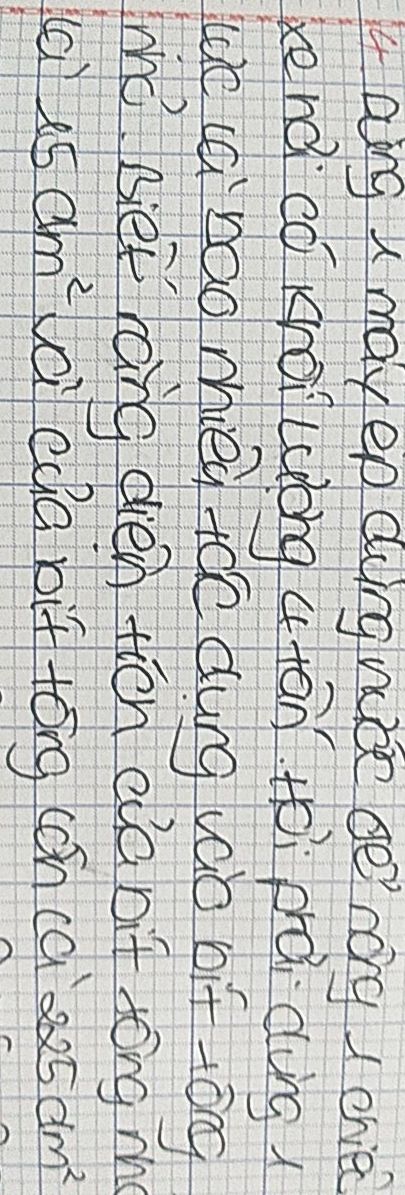 4. Dùng 1 máy ép dùng nước để nâng 1 chiế
xe hơi có khối lượng 4 tấn. thì phải dùng 1
lực là bao nhiêu tác dụng vào pít tông
nhỏ. Biết rằng diện tích của pít tông nhỏ
là 15 dm² và của pít tông lớn là 225 dm²